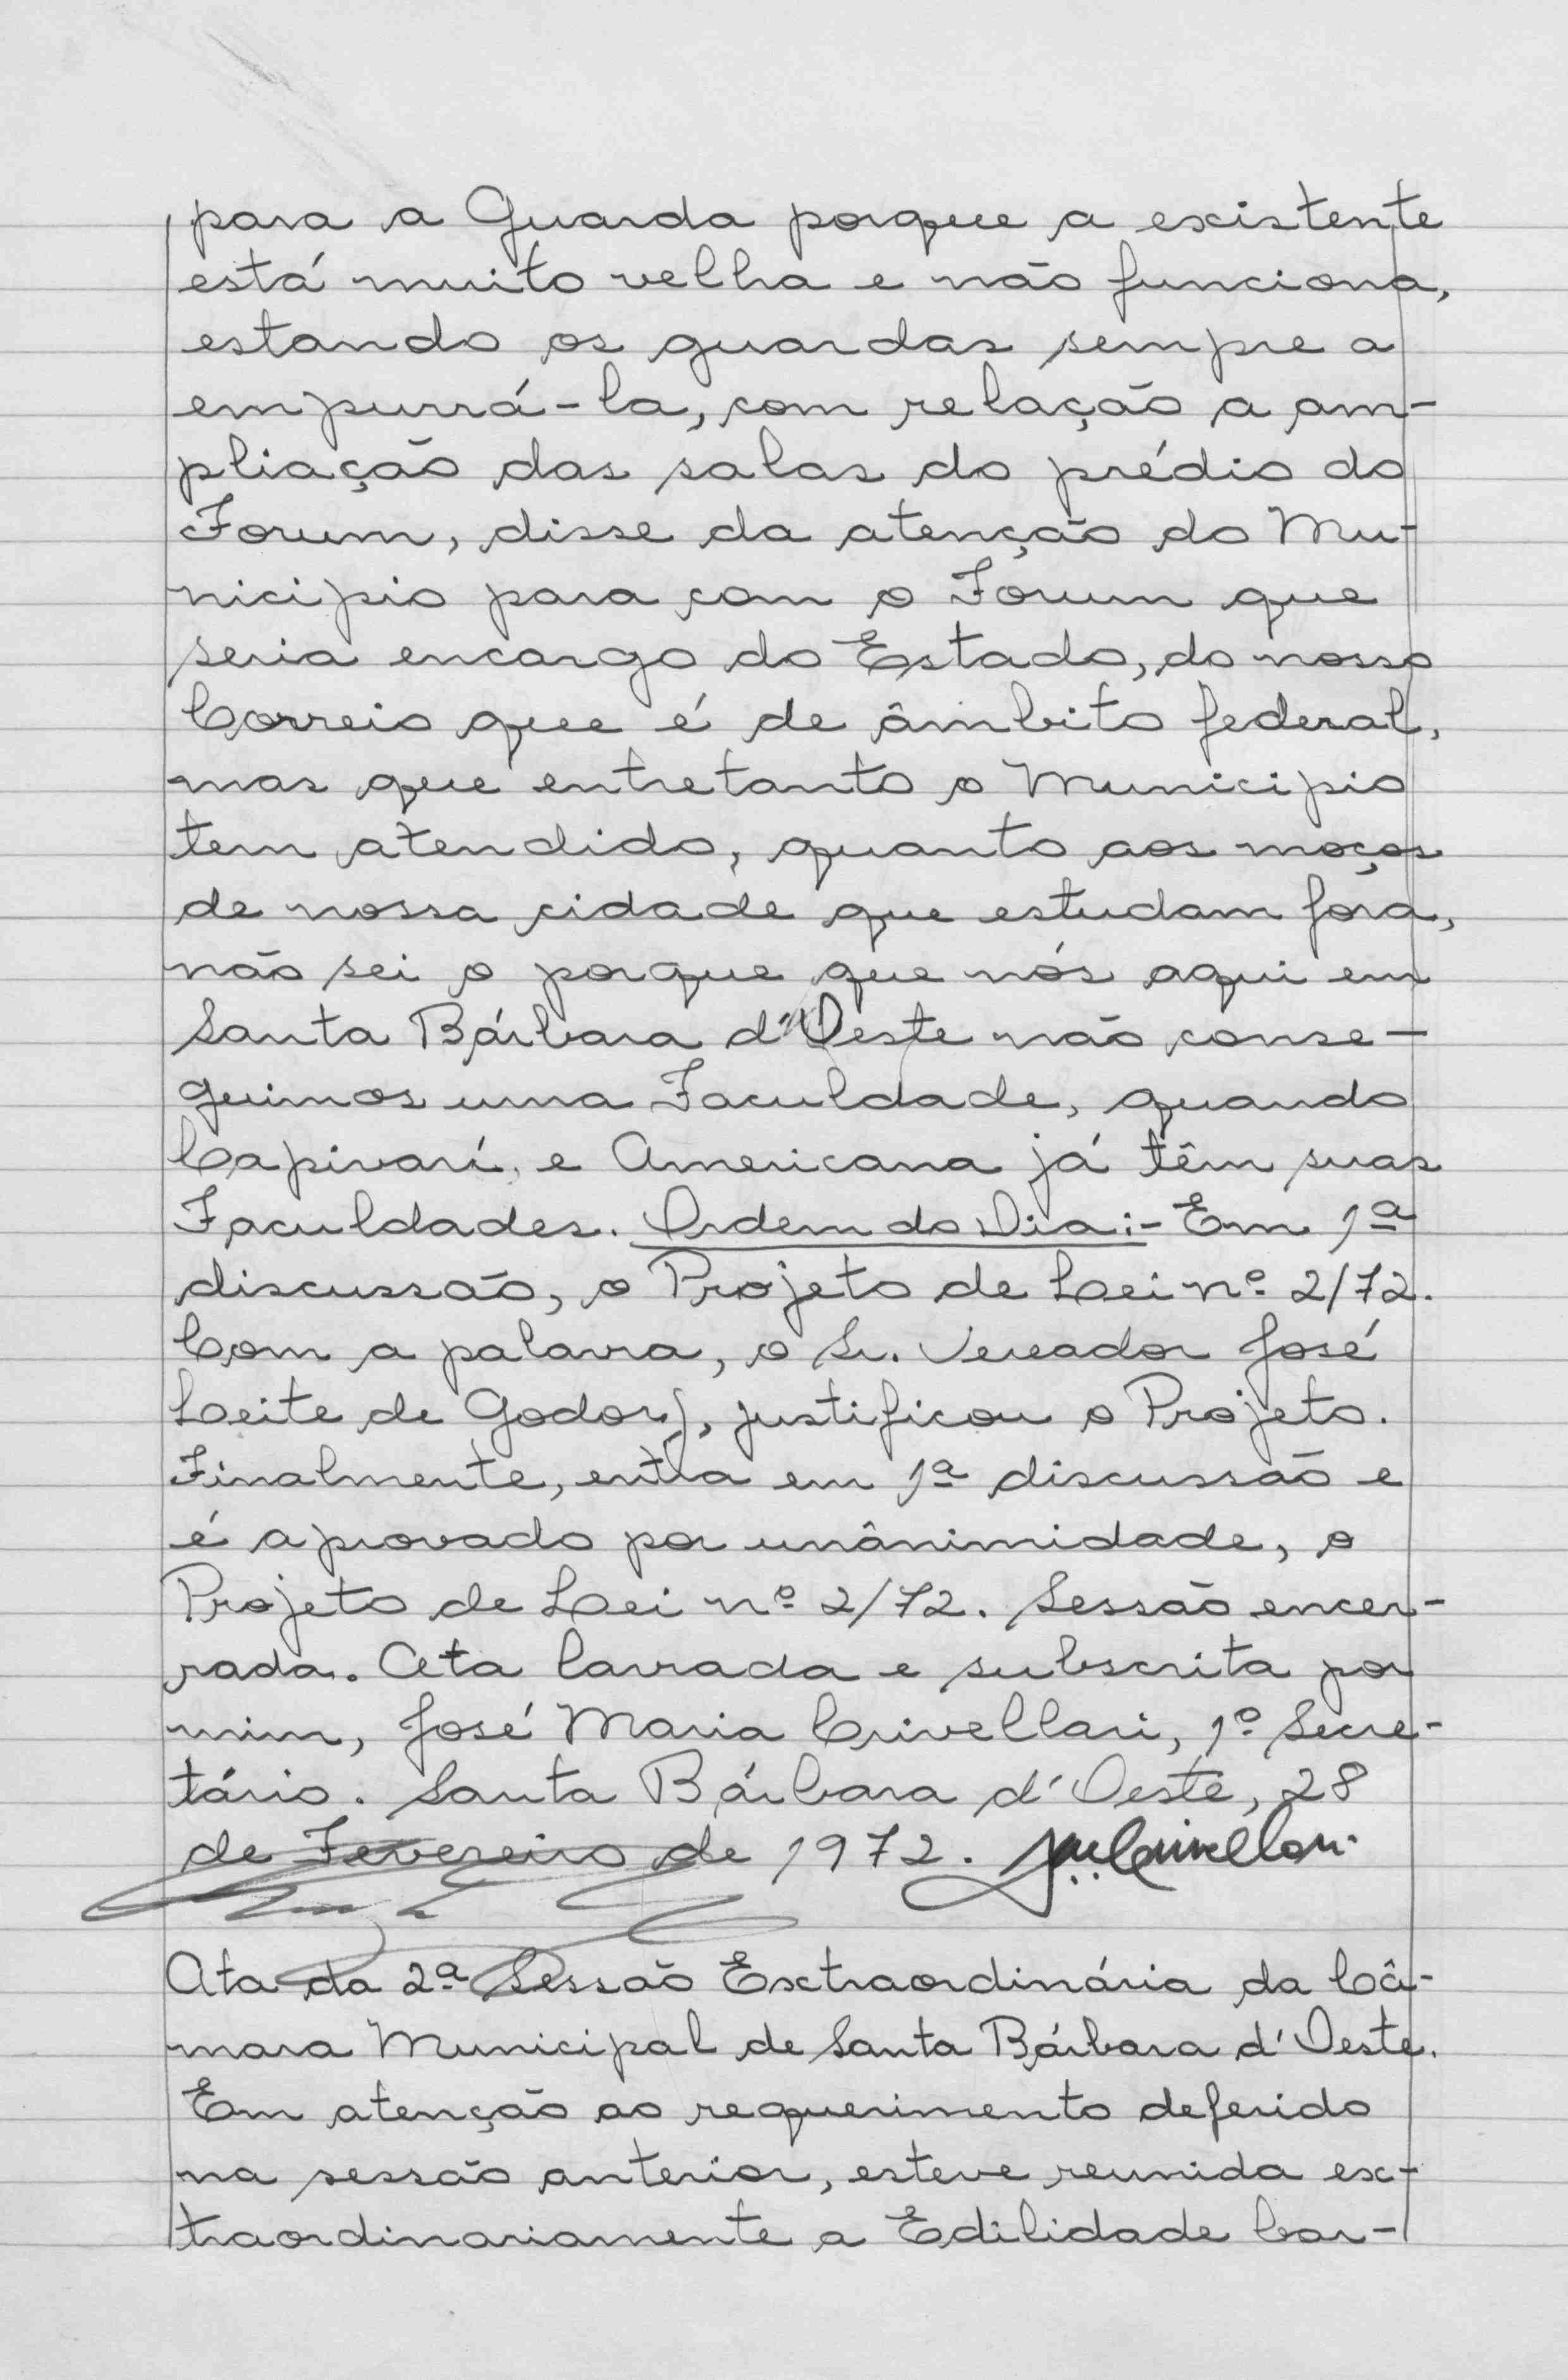 para a Guarda porque a existente
está muito velha e não funciona,
estando os guardas sempre a
empurrá-la, com relação a am-
pliação das salas do prédio do
Forum, disse da atenção do Mu-
nicipio para com o Forum que
seria encargo do Estado, do nosso
Correio que é de âmbito federal,
mas que entretanto o Municipio
tem atendido, quanto aos moços
de nossa cidade que estudam fora,
não sei o porque que nós aqui em
Santa Bárbara d'Oeste não conse-
guimos uma Faculdade, quando
Capivarí, e Americana já têm suas
Faculdades. Ordem do Dia:- Em 1ª
discussão, o Projeto de Lei nº 2/72.
Com a palavra, o Sr. Vereador José
Leite de Godoy, justificou o Projeto.
Finalmente, entra em 1ª discussão e
é aprovado por unânimidade, o
Projeto de Lei nº 2/72. Sessão encer-
rada. Ata lavrada e subscrita por
mim, José Maria Crivellari, 1º Secre-
tário. Santa Bárbara d'Oeste, 28
de Fevereiro de 1972. JMCrivellari
Ata da 2ª Sessão Extraordinária da Câ-
mara Municipal de Santa Bárbara d'Oeste.
Em atenção ao requerimento deferido
na sessão anterior, esteve reunida ex-
traordinariamente a Edilidade bar-